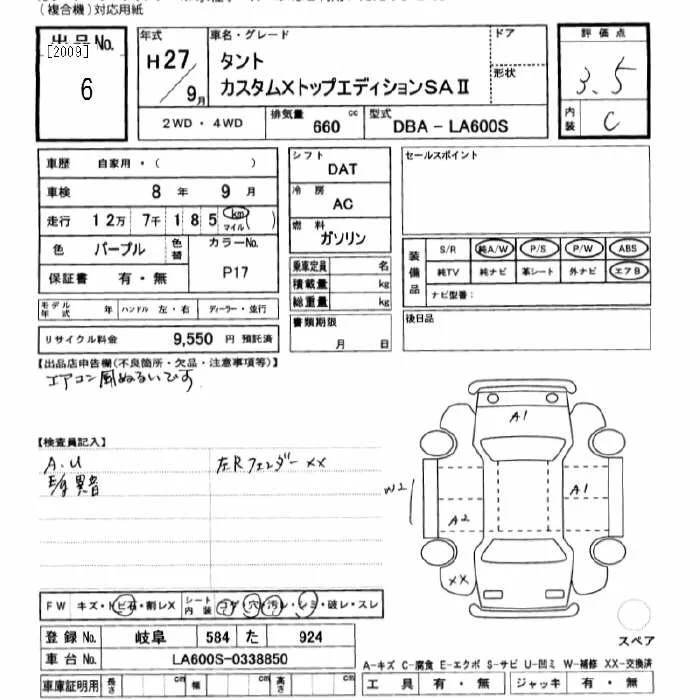 (複合機)対応用紙
出品No.
[2009]
6
年式
H27/9月
車名・グレード
タント
カスタムXトップエディションSAⅡ
ドア
形状
評価点
3.5
内装
C
2WD・4WD
排気量
660
cc
型式
DBA－LA600S
車歴 自家用・( )
車検 8年 9月
走行 12万 7千 185 km マイル ( )
色 パープル
色替
カラーNo.
P17
保証書 有・無
モデル年式 年 ハンドル 左・右 ディーラー・並行
リサイクル料金 9,550 円 預託済
シフト
DAT
冷房
AC
燃料
ガソリン
乗車定員 名
積載量 kg
総重量 kg
書類期限
月 日
セールスポイント
装備品
S/R 純A/W P/S P/W ABS
純TV 純ナビ 革シート 外ナビ エアB
ナビ型番:
後日品
【出品店申告欄(不良箇所・欠品・注意事項等)】
エアコン風ぬるいです
【検査員記入】
A.U
左Rフェンダー XX
異音
A1
W2
A1
A2
XX
FW キズ・トビ石・割レX
シート内装 コゲ・穴・汚レ・シミ・破レ・スレ
スペア
登録No. 岐阜 584 た 924
車台No. LA600S-0338850
A-キズ C-腐食 E-エクボ S-サビ U-凹ミ W-補修 XX-交換済
車庫証明用 長さ cm 幅 cm 高さ cm
工具 有・無 ジャッキ 有・無